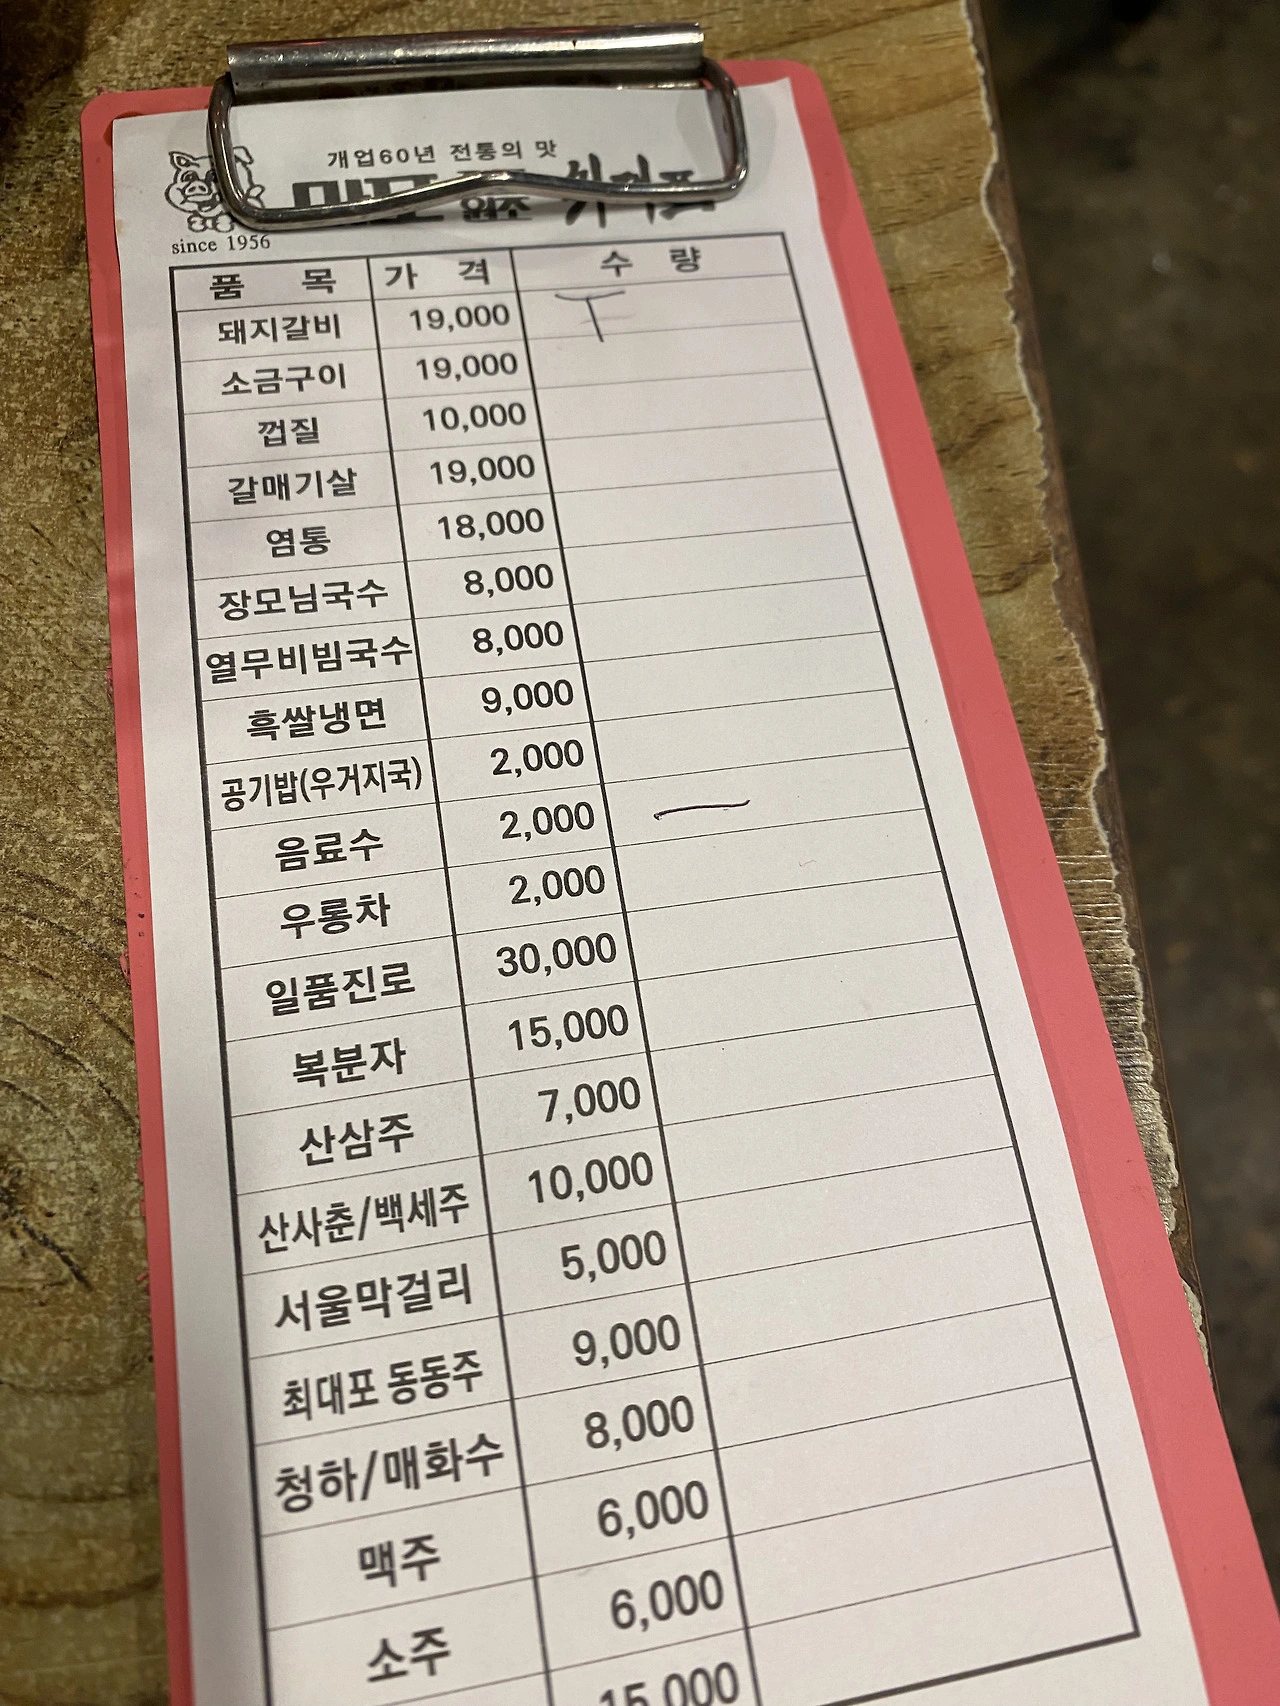 개업60년 전통의 맛
원조
since 1956
품 목 가 격 수 량
돼지갈비 19,000 丅
소금구이 19,000
껍질 10,000
갈매기살 19,000
염통 18,000
장모님국수 8,000
열무비빔국수 8,000
흑쌀냉면 9,000
공기밥(우거지국) 2,000
음료수 2,000 一
우롱차 2,000
일품진로 30,000
복분자 15,000
산삼주 7,000
산사춘/백세주 10,000
서울막걸리 5,000
최대포 동동주 9,000
청하/매화수 8,000
맥주 6,000
소주 6,000
15,000